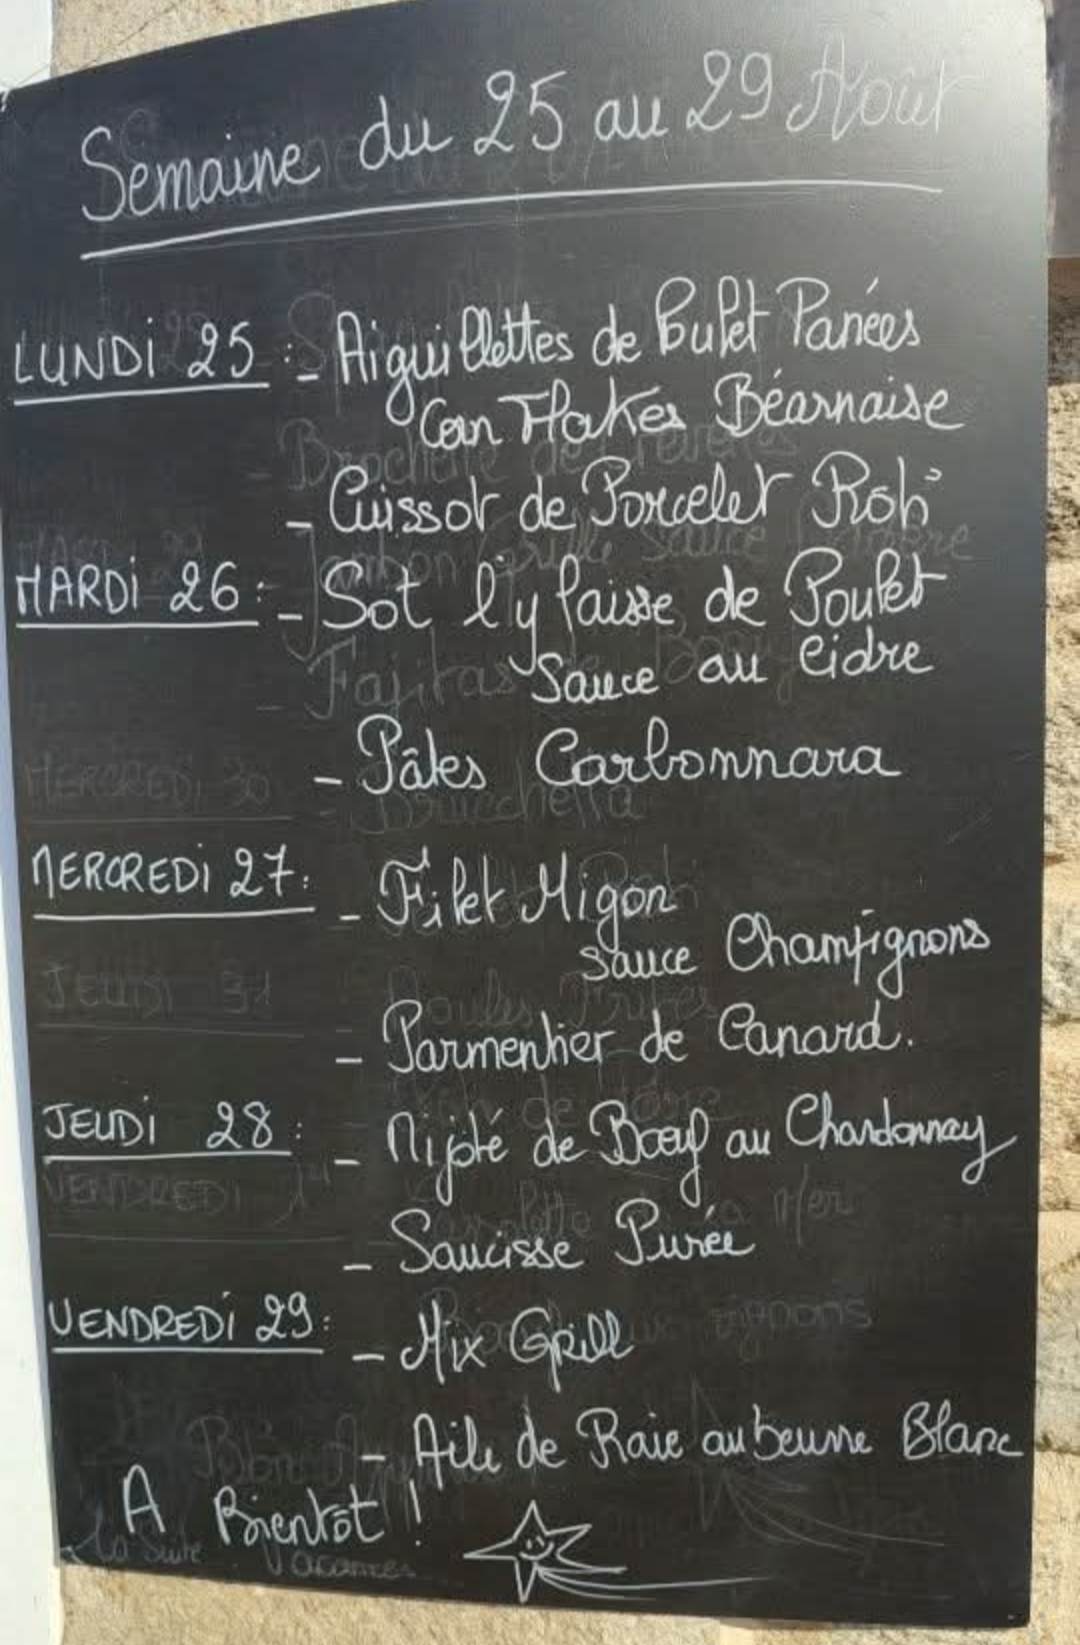 Semaine du 25 au 29 Août
LUNDI 25 : - Aiguillettes de Pulet Panées
Corn Flakes Béarnaise
- Cuissot de Porcelet Rôti
MARDI 26 : - Sot l'y laisse de Poulet
Sauce au Cidre
- Pâtes Carbonnara
MERCREDI 27 : - Filet Migon
sauce Champignons
- Parmentier de Canard.
JEUDI 28 : - Mijoté de Boeuf au Chardonnay
- Saucisse Purée
VENDREDI 29 : - Mix Grill
- Aile de Raie au beurre Blanc
A Bientôt !